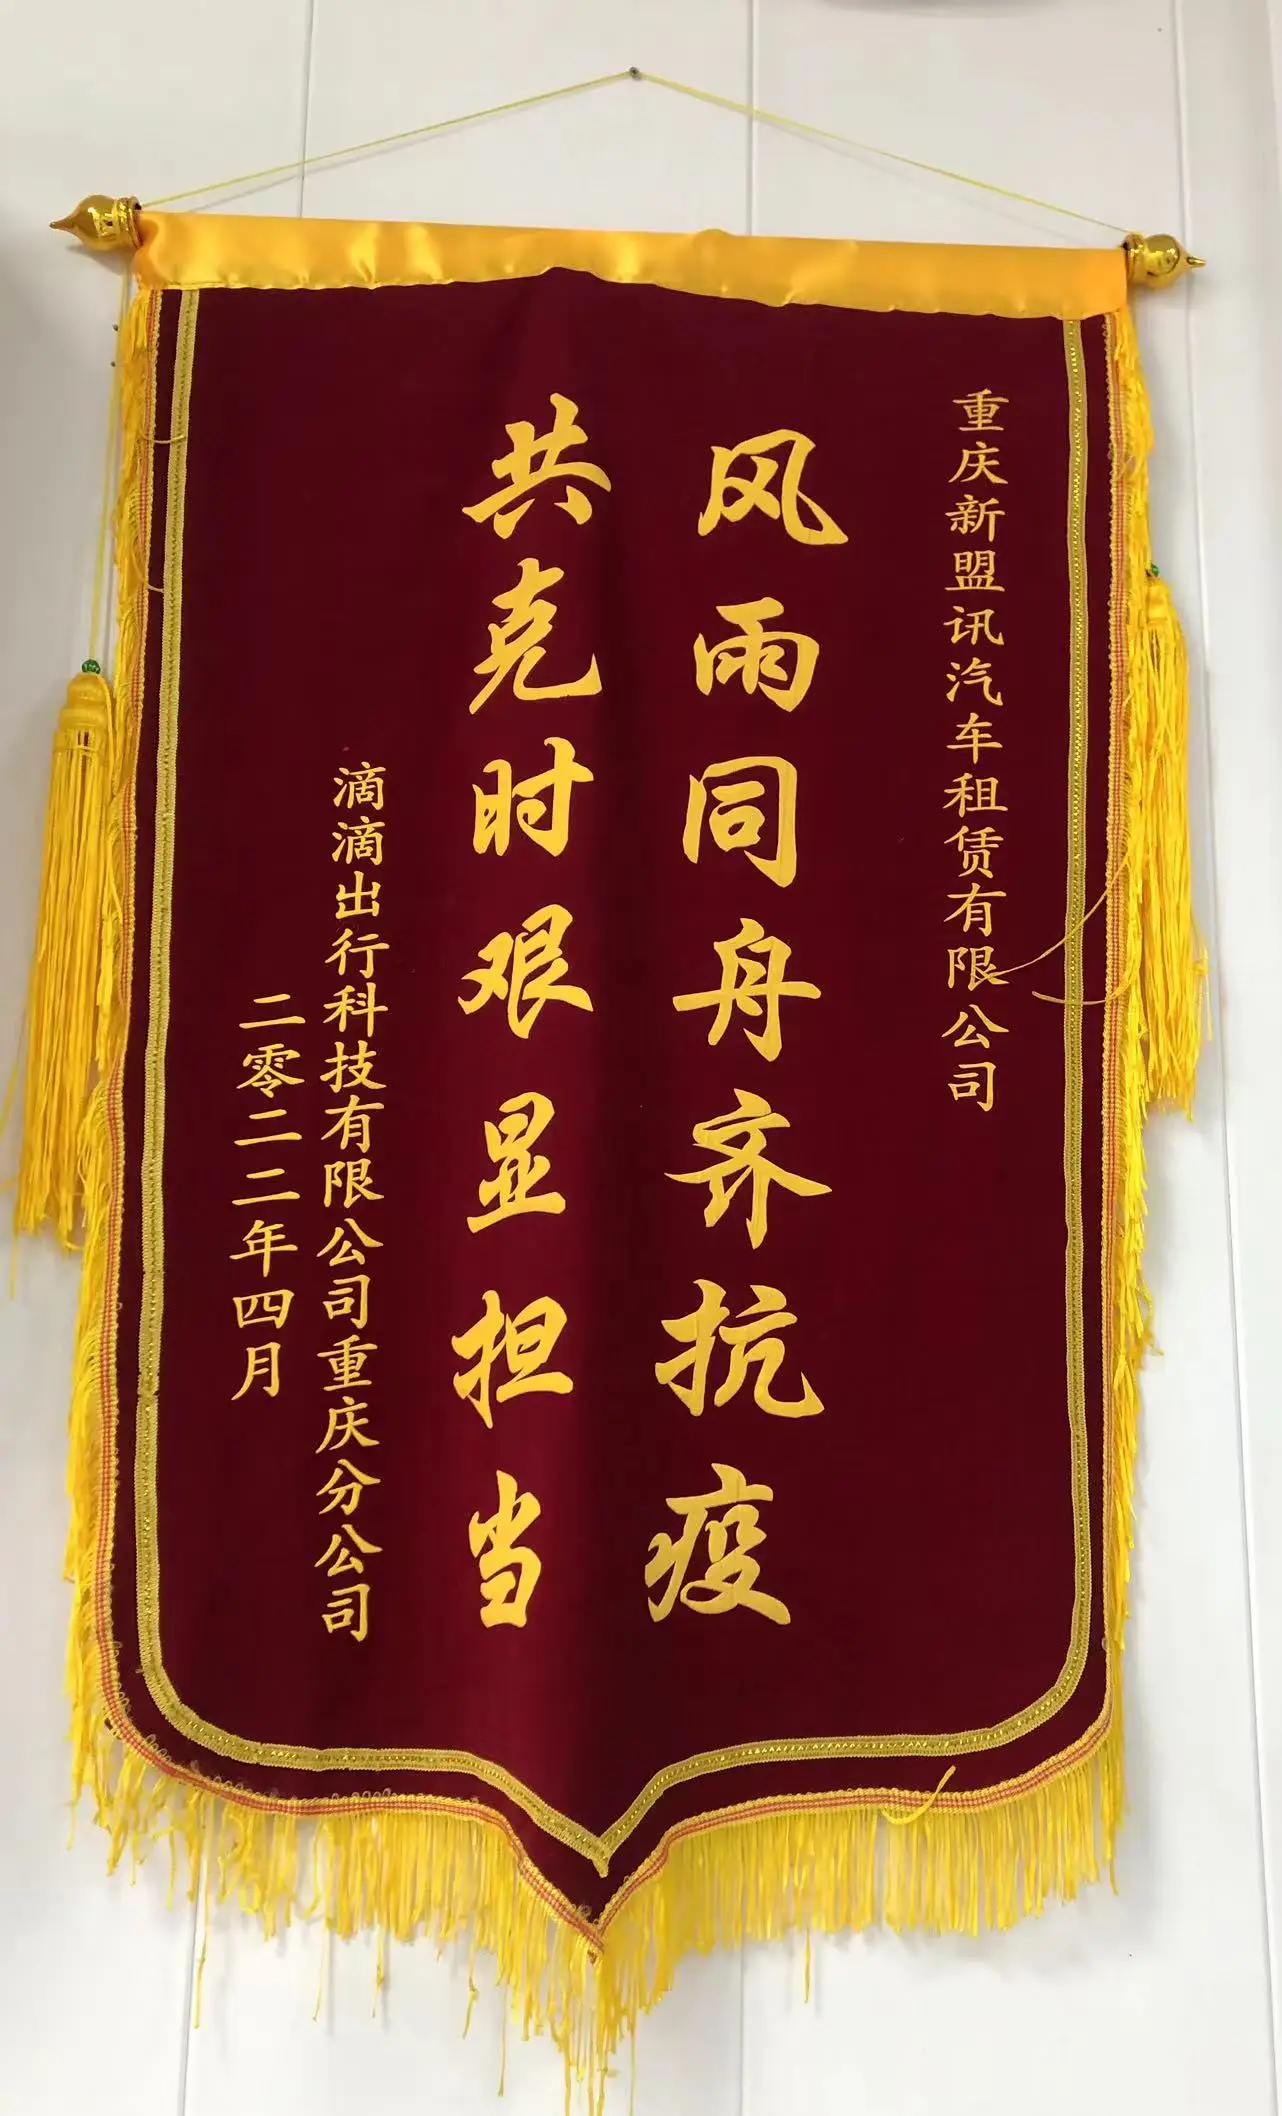 重庆新盟讯汽车租赁有限公司
风雨同舟齐抗疫
共克时艰显担当
滴滴出行科技有限公司重庆分公司
二零二二年四月